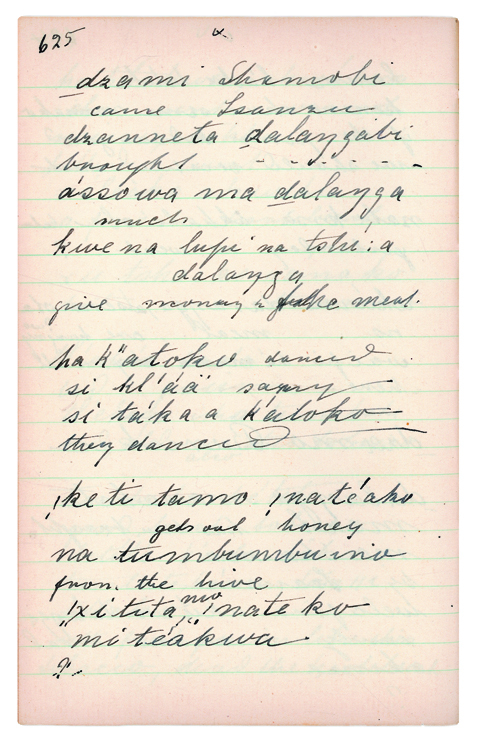 625
dzami Shamobi
came Isanzu
dzanneta dalaygabi
brought - - - - - -
ássowa ma dalayga
much
kwe na lupi na tshi:a
dalayga
give money & take meal.
ha k"atoko danced
si kl'áä sangry
si táka a k'atoko
they danced
!keti tamo !natéako
gets out honey
na tumbumbuino
from the hive
!xitita mo !nateko
mitéakwa.
?